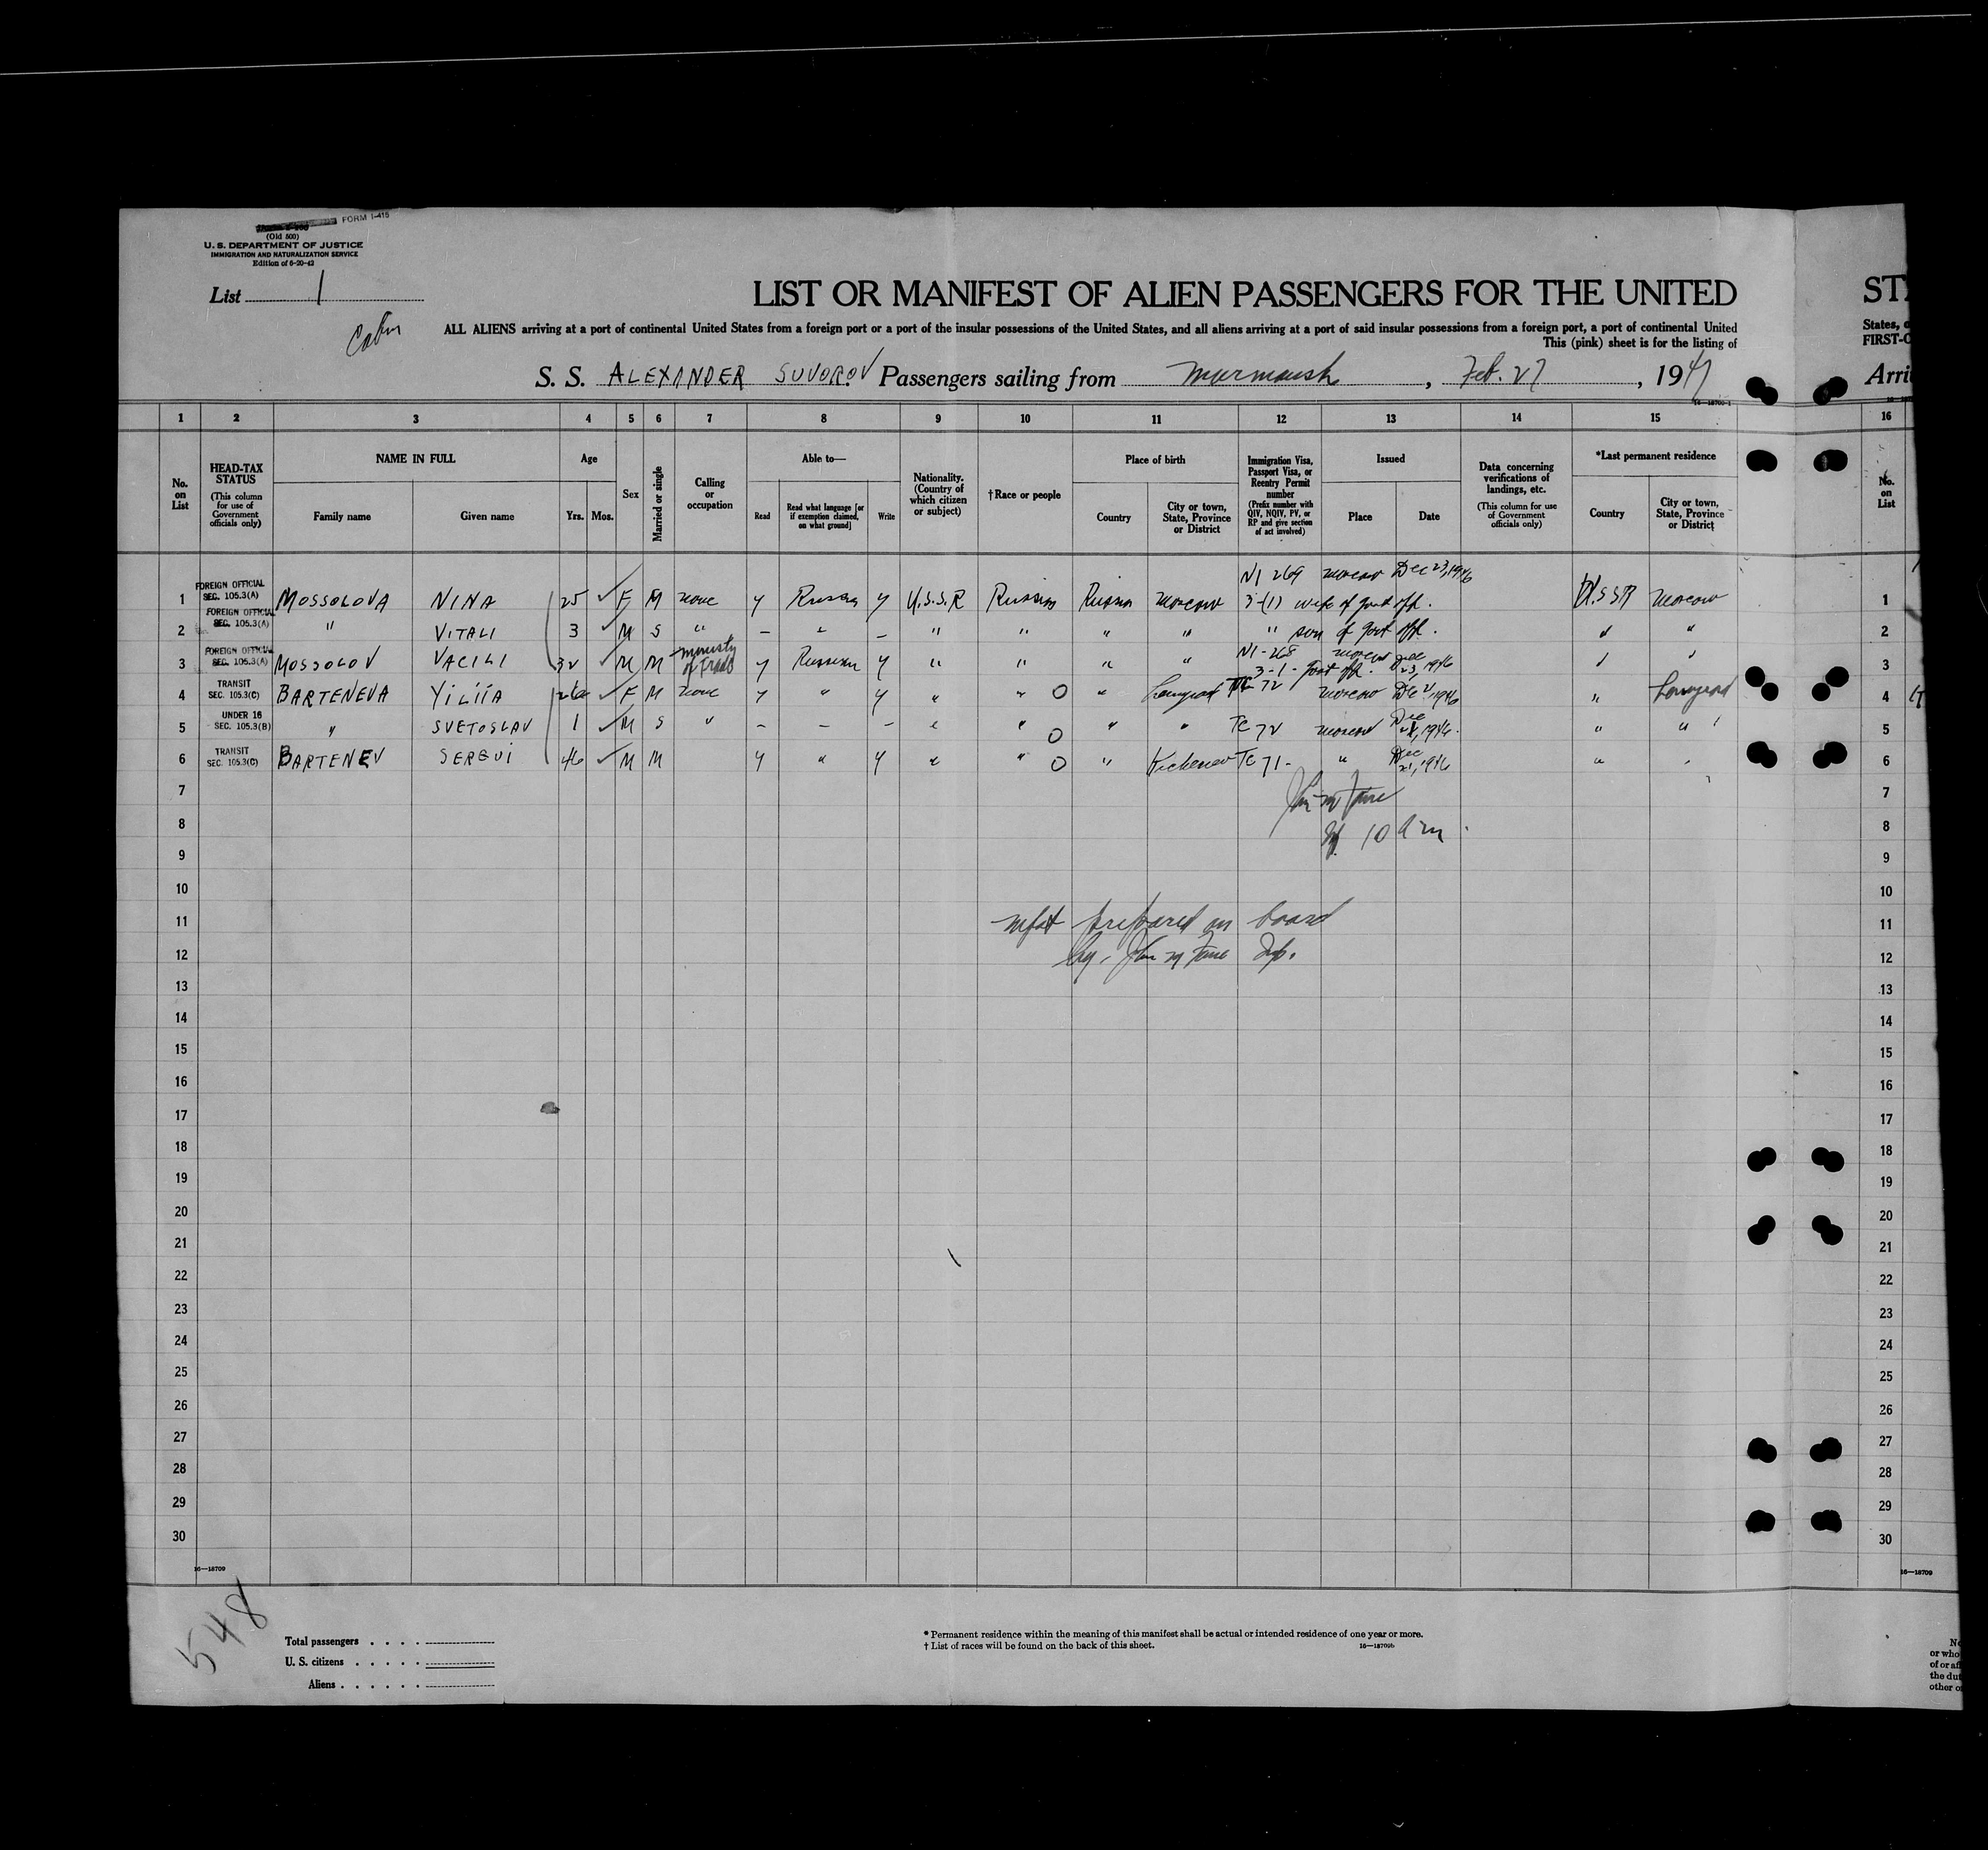 FORM I-415
(Old 500)
U. S. DEPARTMENT OF JUSTICE
IMMIGRATION AND NATURALIZATION SERVICE
Edition of 6-20-42
List 1
Cabin
LIST OR MANIFEST OF ALIEN PASSENGERS FOR THE UNITED
ALL ALIENS arriving at a port of continental United States from a foreign port or a port of the insular possessions of the United States, and all aliens arriving at a port of said insular possessions from a foreign port, a port of continental United
This (pink) sheet is for the listing of
S. S. ALEXANDER SUVOROV Passengers sailing from Murmansk, Feb. 27, 1947
16—18709-1
STA
States, o
FIRST-C
Arri
1 2 3 4 5 6 7 8 9 10 11 12 13 14 15 16
No. on List
HEAD-TAX STATUS (This column for use of Government officials only)
NAME IN FULL
Family name
Given name
Age
Yrs. Mos.
Sex
Married or single
Calling or occupation
Able to—
Read
Read what language [or if exemption claimed, on what ground]
Write
Nationality. (Country of which citizen or subject)
†Race or people
Place of birth
Country
City or town, State, Province or District
Immigration Visa, Passport Visa, or Reentry Permit number (Prefix number with QIV, NQIV, PV, or RP and give section of act involved)
Issued
Place
Date
Data concerning verifications of landings, etc. (This column for use of Government officials only)
*Last permanent residence
Country
City or town, State, Province or District
No. on List
N1 269 moscow Dec 23, 1946
1 FOREIGN OFFICIAL SEC. 105.3(A) MOSSOLOVA NINA 25 F M none y Russian y U.S.S.R Russian Russia moscow 3-(1) wife of govt off. U.S.S.R moscow 1
2 FOREIGN OFFICIAL SEC. 105.3(A) " VITALI 3 M S " – " – " " " " " son of govt off. " " 2
3 FOREIGN OFFICIAL SEC. 105.3(A) MOSSOLOV VACILI 32 M M ministry of Trade y Russian y " " " " N1-268 3-1- govt off. moscow Dec 23, 1946 " " 3
4 TRANSIT SEC. 105.3(C) BARTENEVA YILIIA 26 F M none y " y " " O " Leningrad TC 72 moscow Dec 21, 1946 " Leningrad 4
5 UNDER 16 SEC. 105.3(B) " SVETOSLAV 1 M S " – – – " " O " " TC 72 moscow Dec 21, 1946. " " 5
6 TRANSIT SEC. 105.3(C) BARTENEV SERGUI 46 M M y " y " " O " Kichenev TC 71- " Dec 21, 1946 " " 6
7 7
8 10 8
9 9
10 10
11 mfst prepared on board 11
12 by 12
13 13
14 14
15 15
16 16
17 17
18 18
19 19
20 20
21 21
22 22
23 23
24 24
25 25
26 26
27 27
28 28
29 29
30 30
16—18709 16—18709
548
Total passengers
U. S. citizens
Aliens
* Permanent residence within the meaning of this manifest shall be actual or intended residence of one year or more.
† List of races will be found on the back of this sheet. 16—18709b
or who
of or aff
the dut
other o